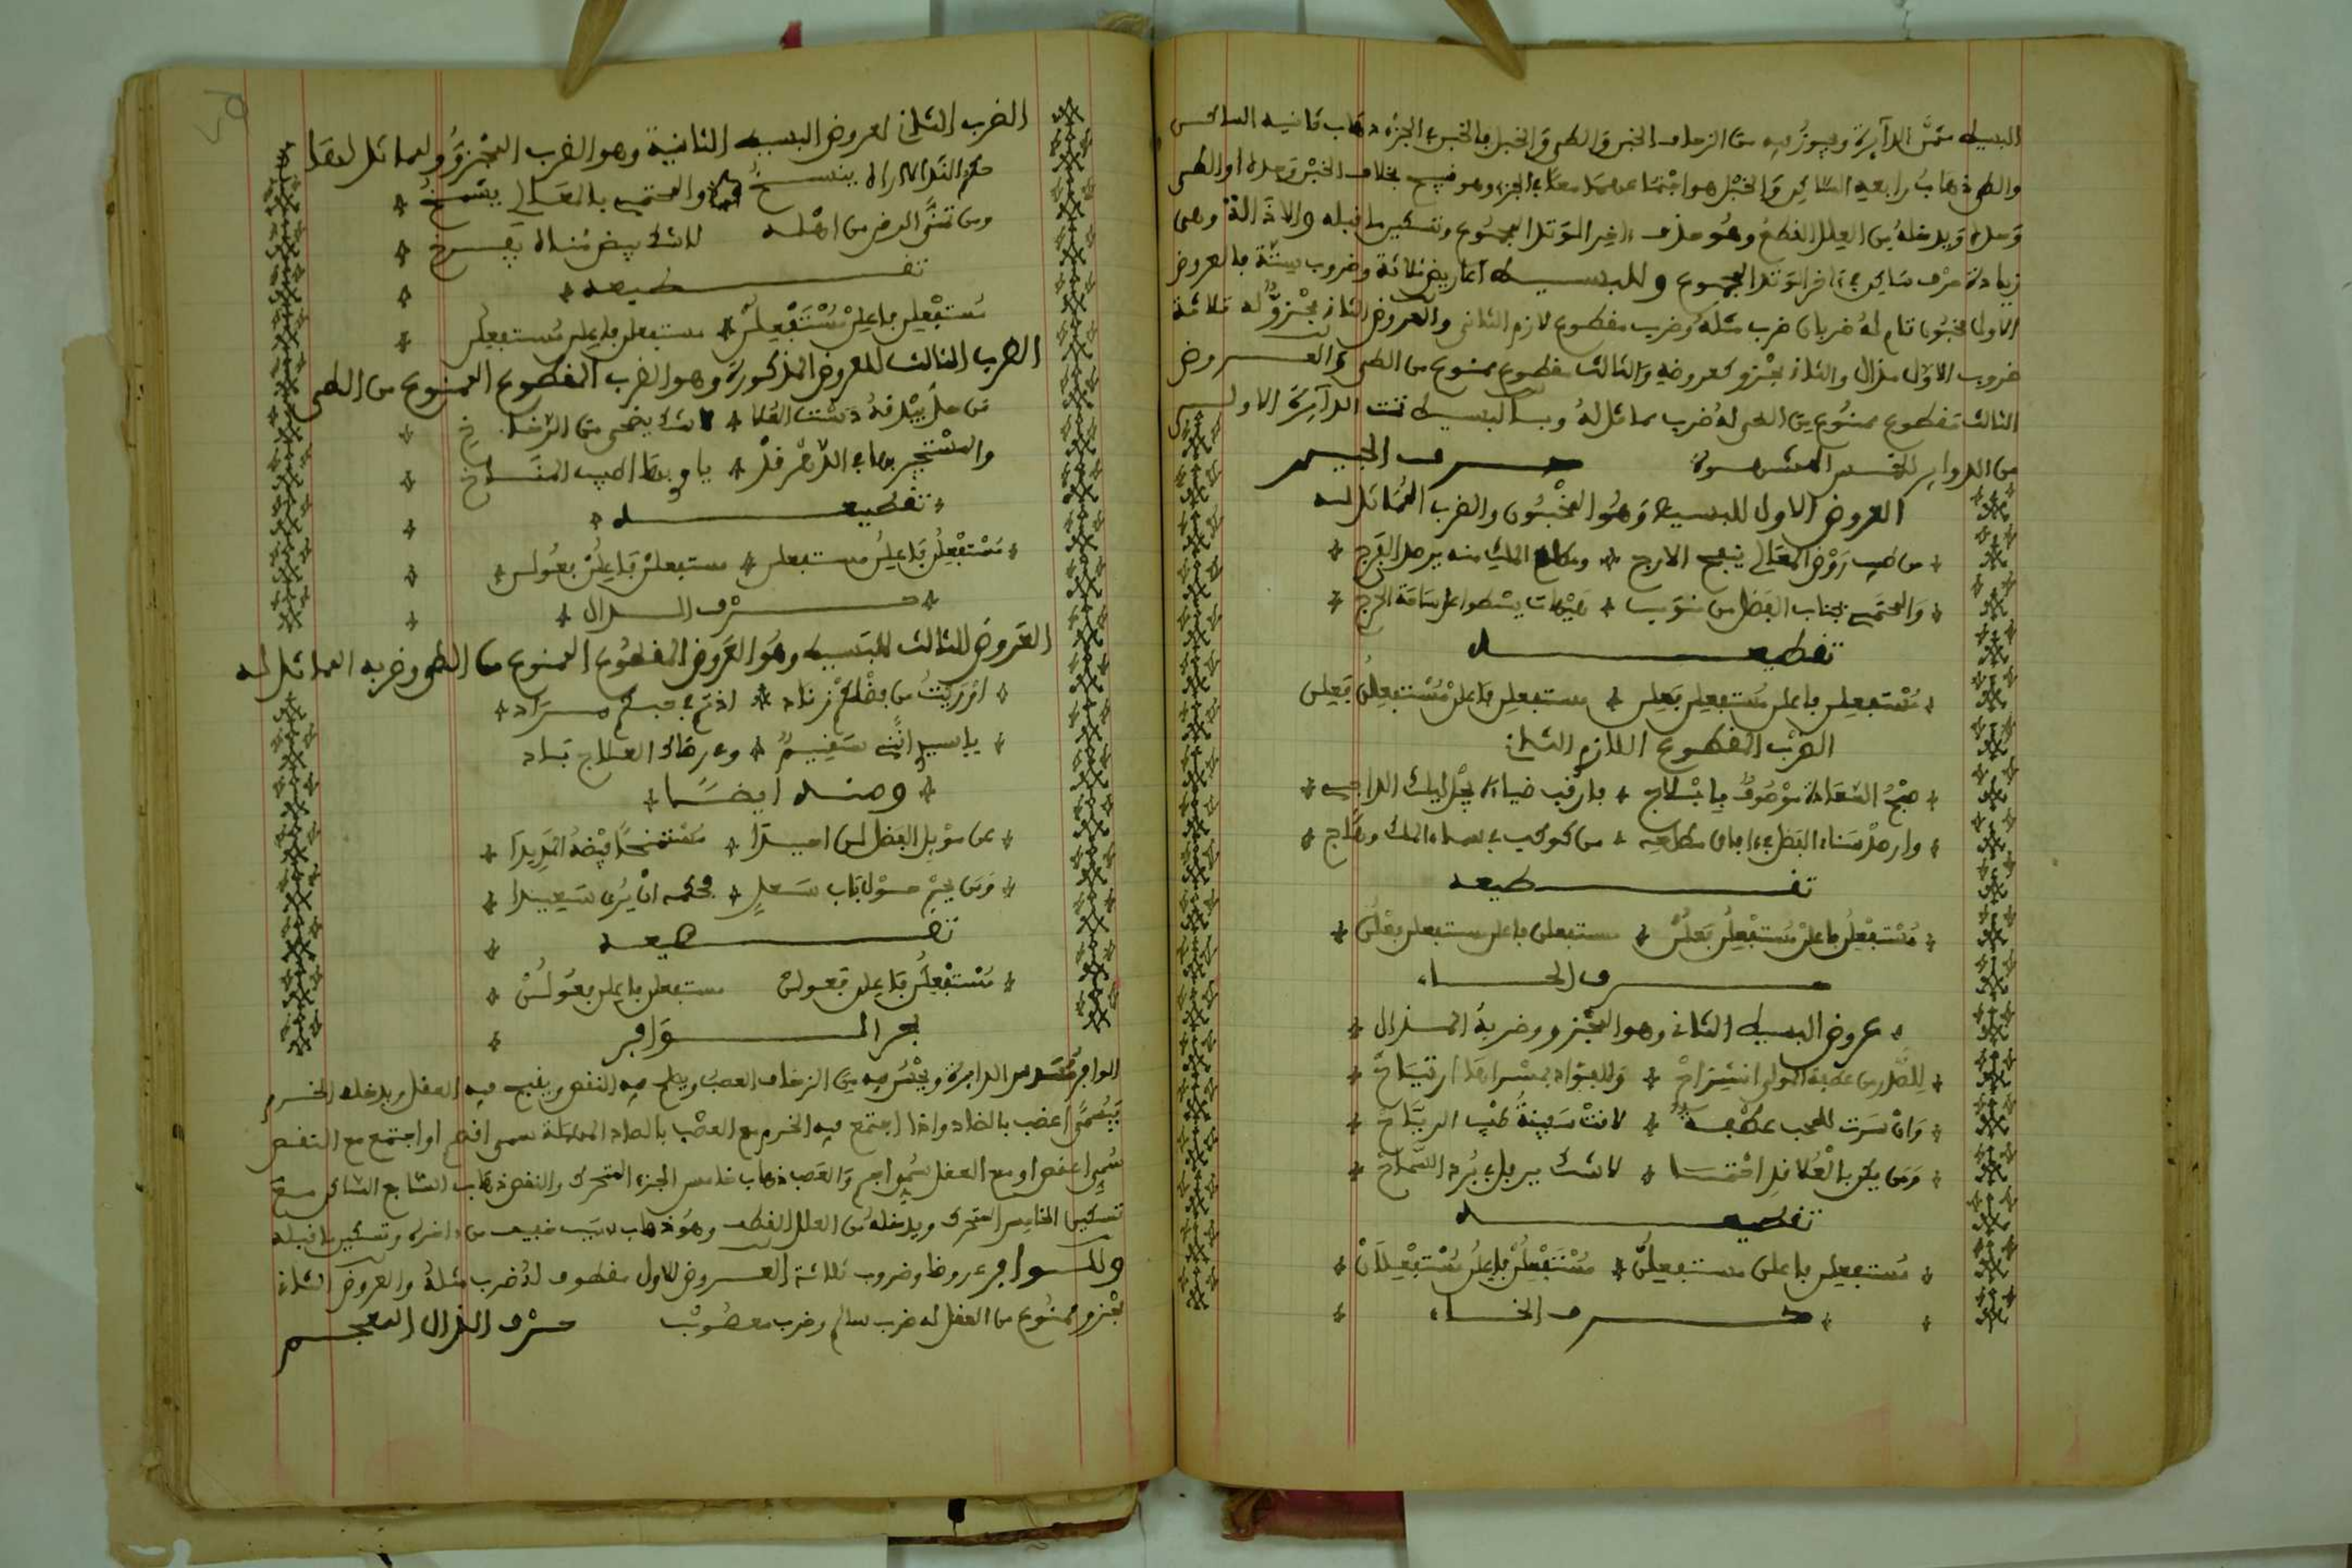 البسيط مثمن الدآيرة ويجوز فيه من الزحاف الخبن والطي والخبل فالخبن في الجزء ذهاب ثانيه الساكن
والطي ذهاب رابعه الساكن والخبل هو اجتماعهما معا في الجزء وهو قبيح بخلاف الخبن وحده او الطي
وحده ويدخله من العلل القطع وهو حذف ءاخر الوتد المجموع وتسكين ما قبله والاذالة وهي
زيادة حرف ساكن في ءاخر الوتد المجموع وللبسيط اعاريض ثلاثة وضروب ستة فالعروض
الاولى مخبون تام له ضربان ضرب مثله وضرب مقطوع لازم الثاني والعروض الثاني مجزو له ثلاثة
ضروب الاول مذال والثاني مجزو كعروضه والثالث مقطوع ممنوع من الطي والعروض
الثالث مقطوع ممنوع من الطي له ضرب مماثل له وبالبسيط تمت الدآيرة الاولى
من الدواير الخمس المشهورة حرف الجيم
العروض الاول للبسيط وهو المخبون والضرب المماثل له
من طيب روض المعالي ينفح الارج ومطلع الملك منه يرصد الفرج
والمحتمي بجناب الفضل من نوب هيهات يسطوا على ساحة الحرج
تقطيعه
مستفعلن فاعلن مستفعلن فعلن مستفعلن فاعلن مستفعلن فعلن
الضرب المقطوع اللازم الثاني
صبح السعادة موصوف بابلاج فارقب ضياءه يجل ليلك الداجي
وارصد سناء الفضل في ءافاق مطلعه من كوكب في سماء الملك وهاج
تقطيعه
مستفعلن فاعلن مستفعلن فعلن مستفعلن فاعلن مستفعلن فعلن
حرف الحاء
عروض البسيط الثاني وهو المجزو وضربه المذال
للصدر من عطفة المولى انشراح وللفؤاد بمسراها ارتياح
وان سرت للمحب عطفة لانت سفينة طيب الرياح
ومن يكن بالعلا نِد احتما لا شك يرفل في برد السماح
تقطيعه
مستفعلن فاعلن مستفعلن مستفعلن فاعلن مستفعلان
حرف الخاء
الضرب الثاني لعروض البسيط الثانية وهو الضرب المجزو والمماثل لها
حكم الندا لا اراه ينسخ والمحتمي بالمعالي يشمخ
ومن تمنى الرضى من اهله لا شك بيض مناه يفرخ
تقطيعه
مستفعلن فاعلن مستفعلن مستفعلن فاعلن مستفعلن
الضرب الثالث للعروض المذكورة وهو الضرب المقطوع الممنوع من الطي
من حل بيدقه دست العلا لا شك يضحى من الرخاخ
والمستجير بها في الدهر فذ يا وبطا طيب المناخ
تقطيعه
مستفعلن فاعلن مستفعلن مستفعلن فاعلن فعولن
حرف الدال
العروض الثالث للبسيط وهو العروض المقطوع الممنوع من الطي وضربه المماثل له
اوريت من فضلكم زناد اذ تم في حبكم مراد
ياسيد انني سقيم وعن رضاك العلاج باد
ومنه ايضا
عن موبل الفضل لن احيدا مستمنحا فيضه المديدا
ومن يخيم حول باب سعد محكمه ان يرى سعيدا
تقطيعه
مستفعلن فاعلن فعولن مستفعلن فاعلن فعولن
بحر الوافر
الوافر مسدس الدايرة ويحسن فيه من الزحاف العصب ويصلح فيه النقص ويقبح فيه العقل ويدخله الخرم
فيسمى اعضب بالضاد واذا اجتمع فيه الخرم مع العصب بالصاد المهملة سمي اقصم او اجتمع مع النقص
سمي اعقص او مع العقل سمي اجم والعصب ذهاب خامس الجزء المتحرك والنقص ذهاب السابع الساكن مع
تسكين الخامس المتحرك ويدخله من العلل القطف وهو ذهاب سبب خفيف من ءاخره وتسكين ما قبله
وللوافر عروضا وضروب ثلاثة العروض الاول مقطوف له ضرب مثله والعروض الثاني
مجزو ممنوع من العقل له ضرب سالم وضرب معصوب حرف الذال المعجم